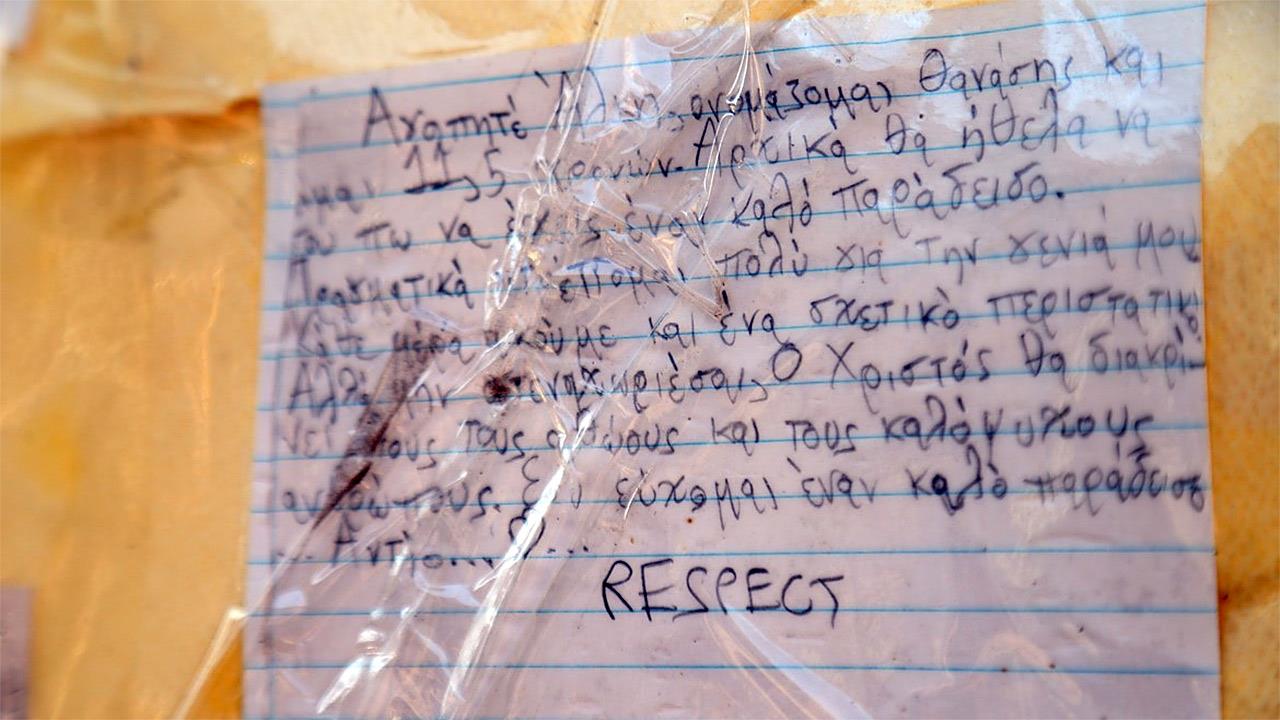 Αγαπητέ Άλκη, ονομάζομαι Θανάσης και
ιμαι 11,5 χρονών. Αρχικά θα ήθελα να
σου πω να έχεις έναν καλό παράδεισο.
Πραγματικά ντρέπομαι πολύ για την γενιά μου
Κάθε μέρα ακούμε και ένα σχετικό περιστατικό
Αλλά μην στεναχωριέσαι, Ο Χριστός θα διακρί-
νει τους αθώους και τους καλόψυχους
ανθρώπους. Σου εύχομαι έναν καλό παράδεισο
... Αντίο...
RESPECT